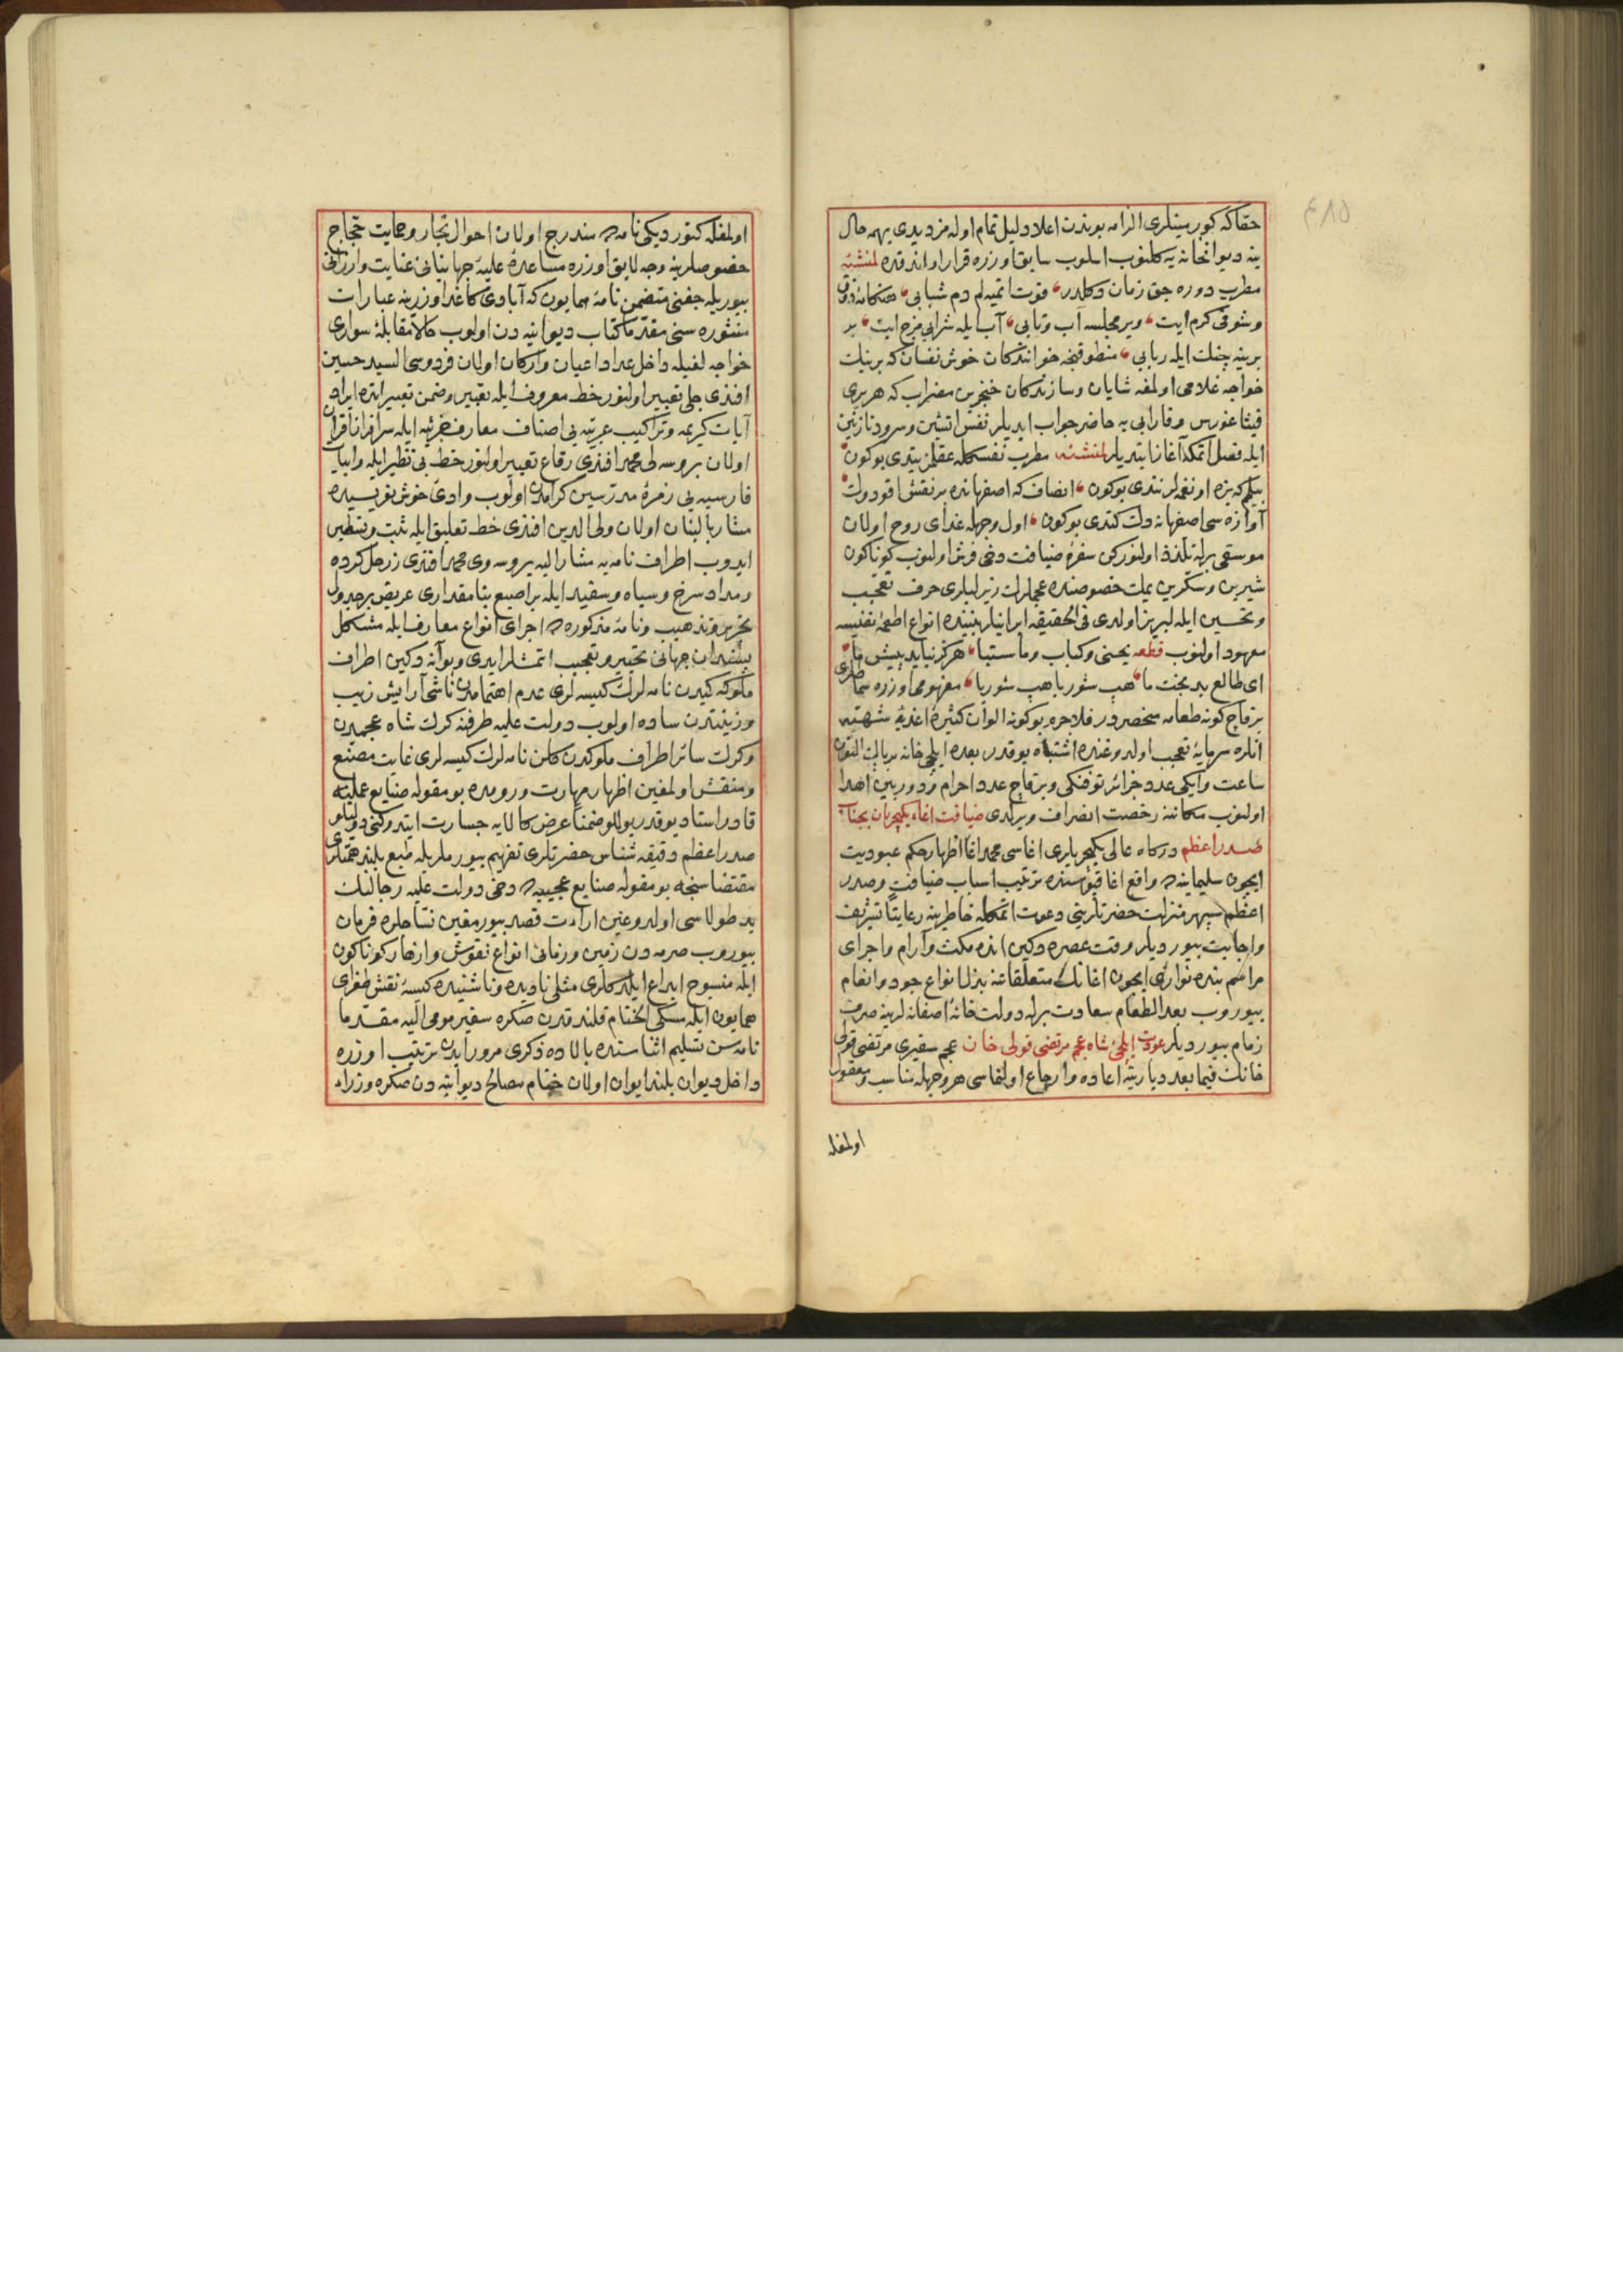 ٤٨٥
حقاكه كور مينلرى الزامه بوندن اعلا دليل تمام اوله مز ديدى بهر حال
ينه ديوانخانه يه كلنوب اسلوب سابق اوزره قرار اولندقده لمنشئه
مطرب دوره جق زمان دكلدر فوت اتميه لم دم شبابى هنكامه ذوق
وشوقى كرم ايت وير مجلسه آب وتابى آب ايله شرابى مزج ايت بر
برينه چنك ايله ربابى منطوقنجه خوانندكان خوش نفسان كه برينك
خواجه غلامى اولمغه شايان وسازندكان خنجرين مضراب كه هربرى
فيثاغورس وفارابى يه حاضر جواب ايديلر نفس اتشين وسرود نازنين
ايله فصل اتمكه آغاز ايتديلر لمنشئه مطرب نفسكله عقلمز يتدى بوكون
بيلم كه بزه او نغمه لر نتدى بوكون انصاف كه اصفهانده بر نقش اقودك
آوازه سى اصفهانه دك كتدى بوكون اول وجهله غداى روح اولان
موسقى برله تلذذ اولنوركن سفره ضيافت دخى فرش اولنوب كوناكون
شيرين وسكرين يمك خصوصنده عجملرك زير لبلرى حرف تعجب
وتحسين ايله لبريز اولدى فى الحقيقه ايرانيلر بيننده انواع اطعمه نفيسه
معهود اولنوب قطعه يخنى وكباب وماستبا هركز نيايد پيش ما
اى طالع بد بخت ما هب شوربا هب شوربا مفهومى اوزره سماطلرى
برقاچ كونه طعامه منحصردر فلاجرم بوكونه الوان كثيره اغذيه شهيه
انلره سرمايه تعجب اولدوغنده اشتباه يوقدر بعده ايلچى خانه بر بالك التون
ساعت وايكى عدد جزائر توفنكى وبرقاچ عدد احرام ودوربين اهدا
اولنوب مكاننه رخصت انصراف ويرلدى ضيافت اغاء يكيچريان بجناب
صدر اعظم دركاه عالى يكيچريلرى اغاسى محمد اغا اظهار حكم عبوديت
ايچون سليمانيه ده واقع اغا قپوسنده ترتيب اسباب ضيافت وصدر
اعظم سپهر منزلت حضرتلرينى دعوت اتمكله خاطرينه رعايتا تشريف
واجابت بيورديلر وقت عصره دكين انده مكث وآرام واجراى
مراسم بنده نوازى ايچون اغانك متعلقاتنه بذل انواع جود وانعام
بيوروب بعد الطعام سعادت برله دولت خانه اصفانه لرينه صرف
زمام بيورديلر عودت ايلچئ شاه عجم مرتضى قولى خان عجم سفيرى مرتضى قولى
خانك فيما بعد ديارينه اعاده وارجاع اولنماسى هر وجهله مناسب ومعقول
اولمغله
اولمغله كتورديكى نامه ده مندرج اولان احوال تجار وحمايت حجاج
خصوصلرينه وجه لايق اوزره مساعده عليه جهانبانى عنايت وارزانى
بيوريله جغنى متضمن نامه همايون كه آبادى كاغد اوزرينه عبارات
منثوره سنى مقدما كتاب ديوانيه دن اولوب حالا مقابله سوارى
خواجه لغيله داخل عداد اعيان واركان اولان فردوسى السيد حسين
افندى جلى تعبير اولنور خط معروف ايله تعبير وضمن تعبيرنده ايراد
آيات كريمه وتراكيب عربيه يى اصناف معارف جزئيه ايله سرافراز اقران
اولان بروسه لى محمد افندى رقاع تعبير اولنور خط بى نظير ايله وابيات
فارسيه يى زمره مدرسين كرامدن اولوب وادئ خوش نويسيده
مشار بالبنان اولان ولى الدين افندى خط تعليق ايله ثبت وتسطير
ايدوب اطراف نامه يه مشار اليه بروسه وى محمد افندى زر حل كرده
ومداد سرخ وسياه وسفيد ايله بر اصبع بنا مقدارى عريض بر جدول
تحرير وتذهيب ونامه مذكوره ده اجراى انواع معارف ايله مشكل
پسندان جهانى تحيير وتعجيب اتمشلر ايدى وبو آنه دكين اطراف
ملوكه كيدن نامه لرك كيسه لرى عدم اهتمامدن ناشى آرايش زيب
وزينتدن ساده اولوب دولت عليه طرفنه كرك شاه عجمدن
وكرك سائر اطراف ملوكدن كلن نامه لرك كيسه لرى غايت مصنع
ومنقش اولمغين اظهار مهارت ورومده بو مقوله صنايع عمليه
قادر استاد يوقدر يوللو ضمنا عرض كالايه جسارت ايتدوكنى دولتلو
صدر اعظم دقيقه شناس حضرتلرى تفهيم بيورملريله طبع بلند همتلرى
مقتضاسنجه بو مقوله صنايع عجيبه ده دخى دولت عليه رجالنك
يد طولاسى اولدوغين ارائت قصد بيورمغين نساجلره فرمان
بيوروب صرمه دن زمين وزمانى انواع نقوش وازهار كوناكون
ايله منسوج ابداع ايلدكلرى مثلى ناديده وناشنيده كيسه نقش طغراى
همايون ايله مسكى الختام قلندقدن صكره سفير مومى اليه مقدما
نامه سن تسليم اثناسنده بالاده ذكرى مرور ايدن ترتيب اوزره
داخل ديوان بلند ايوان اولان ختام مصالح ديوانيه دن صكره وزراء